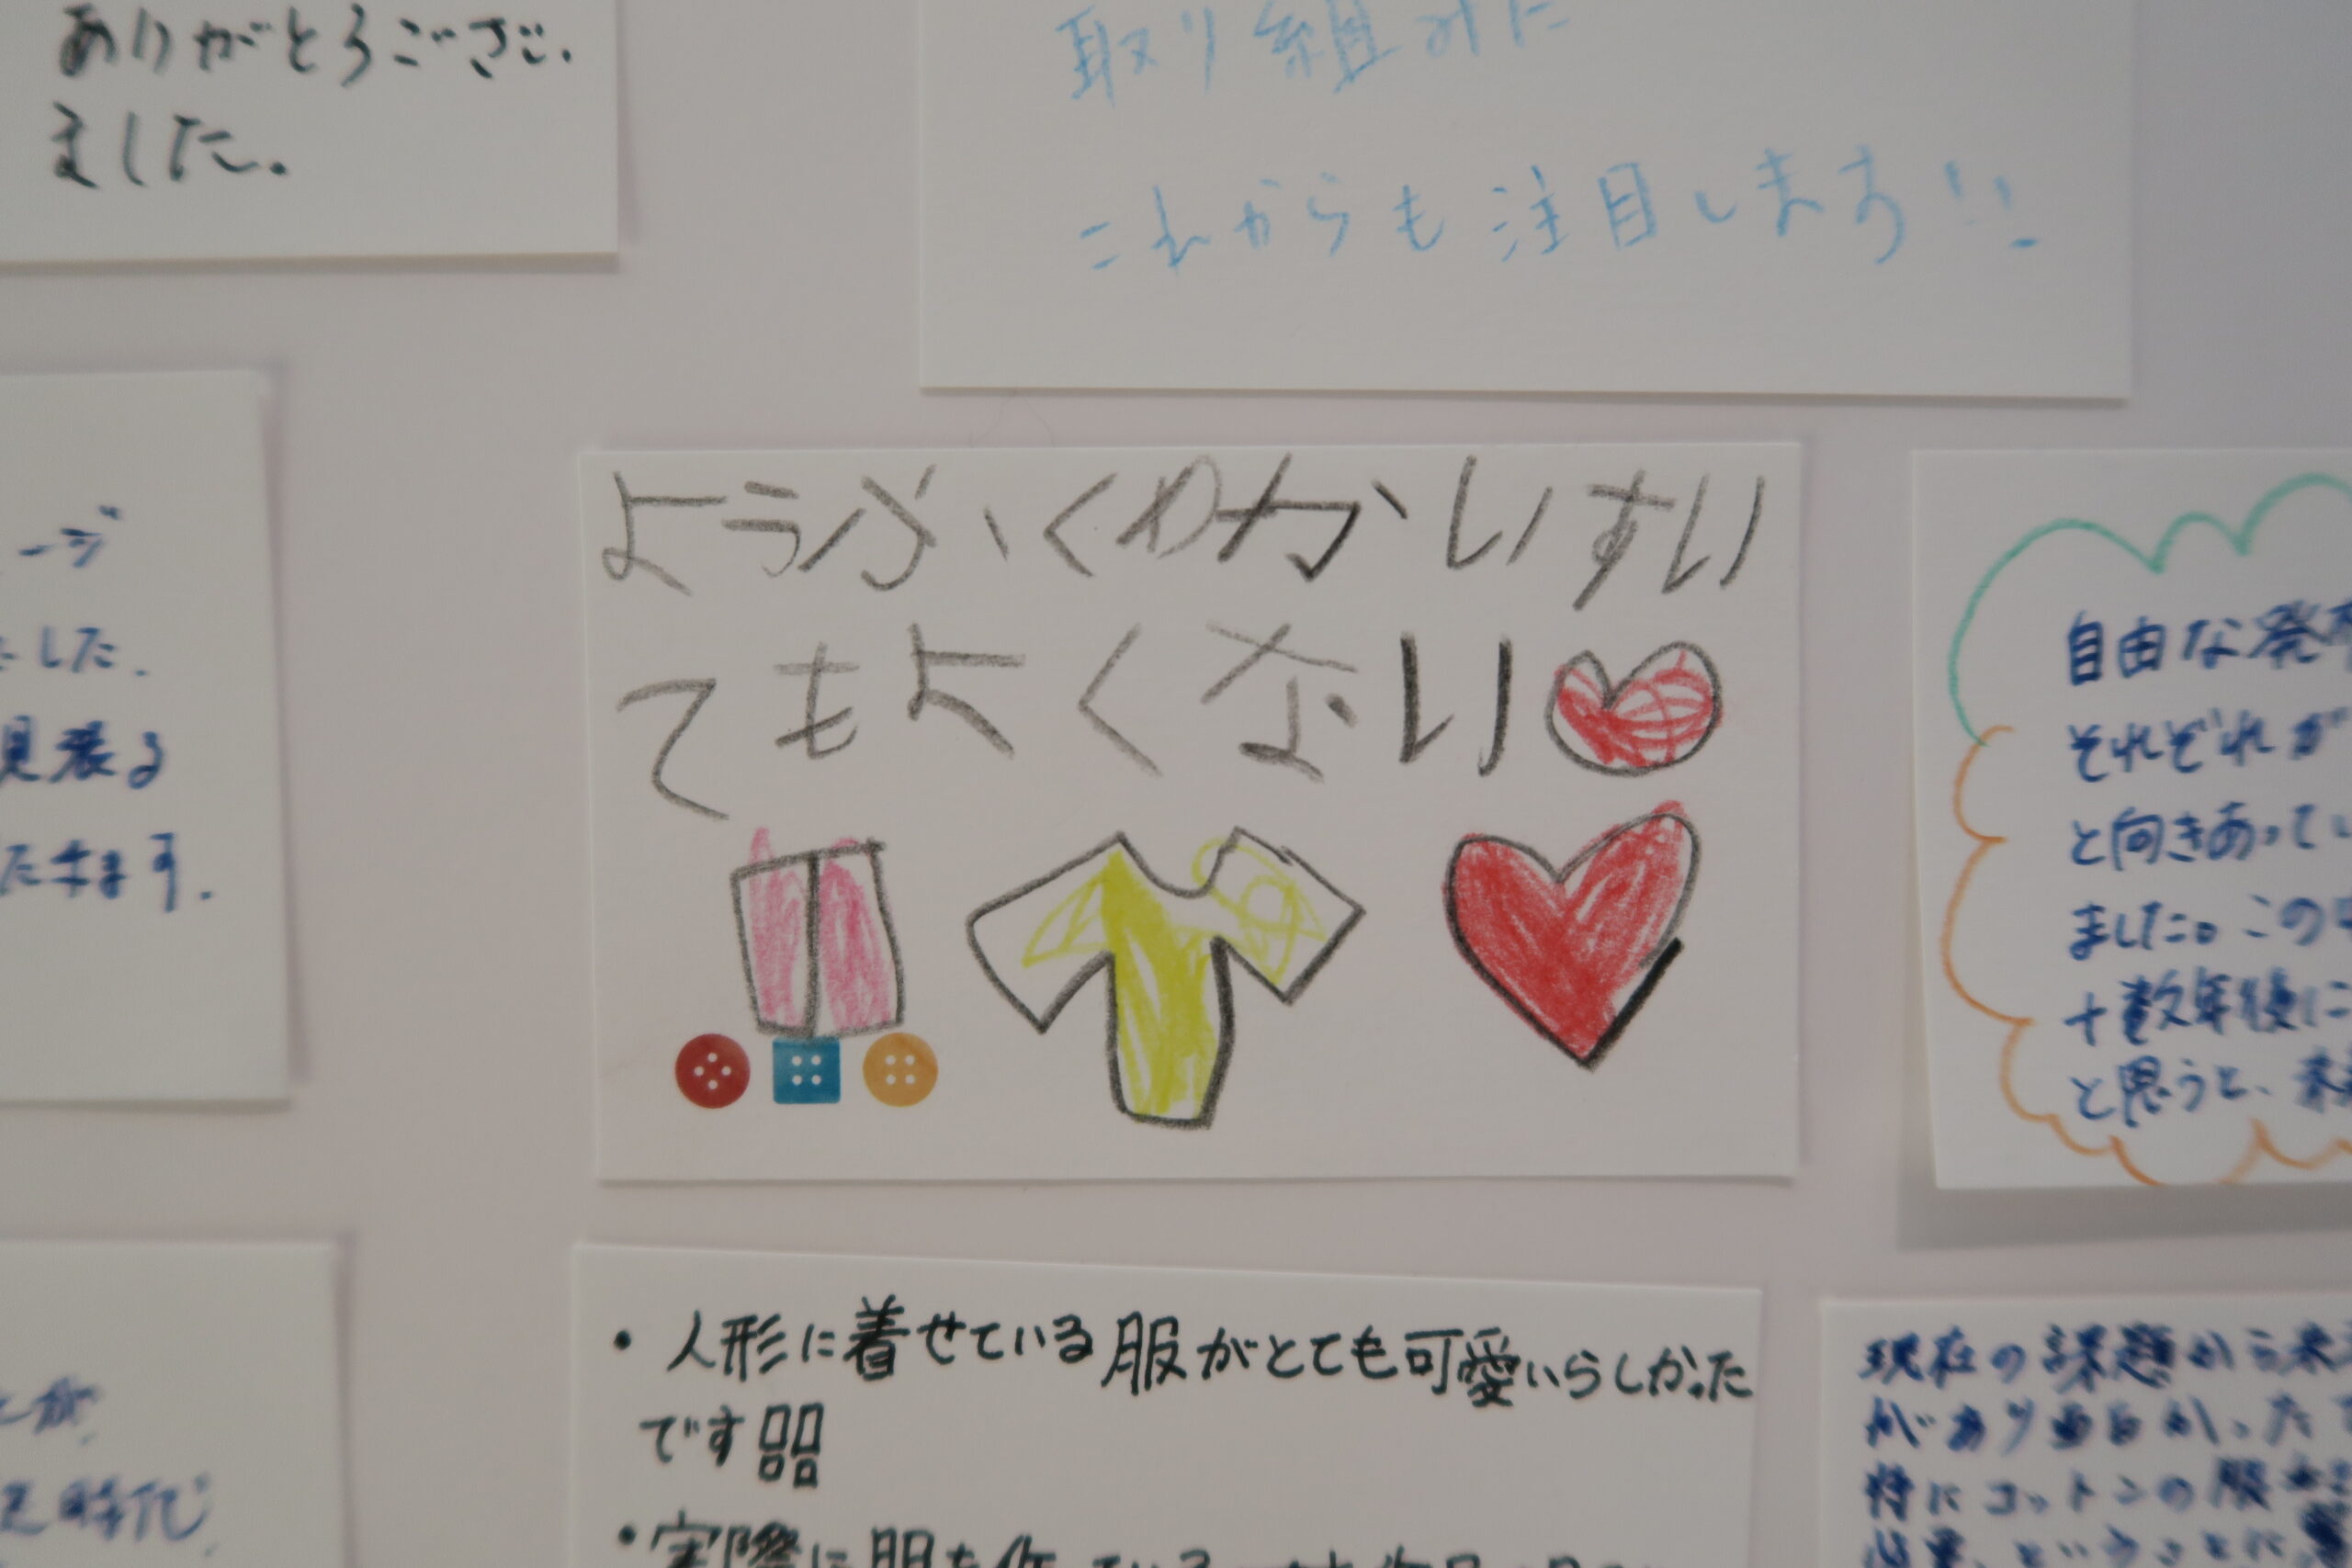 ありがとうござい
ました。
取り組みに
これからも注目します!!
ージ
した.
見張る
ようふくわかいすい
てもよくない
自由な発
それぞれが
と向きあって
ました。この
十数年後に
と思うと、未
・人形に着せている服がとても可愛いらしかった
です!!
・実際に服を作
現在の課題から未
がありましたか
特にコットンの服
時代